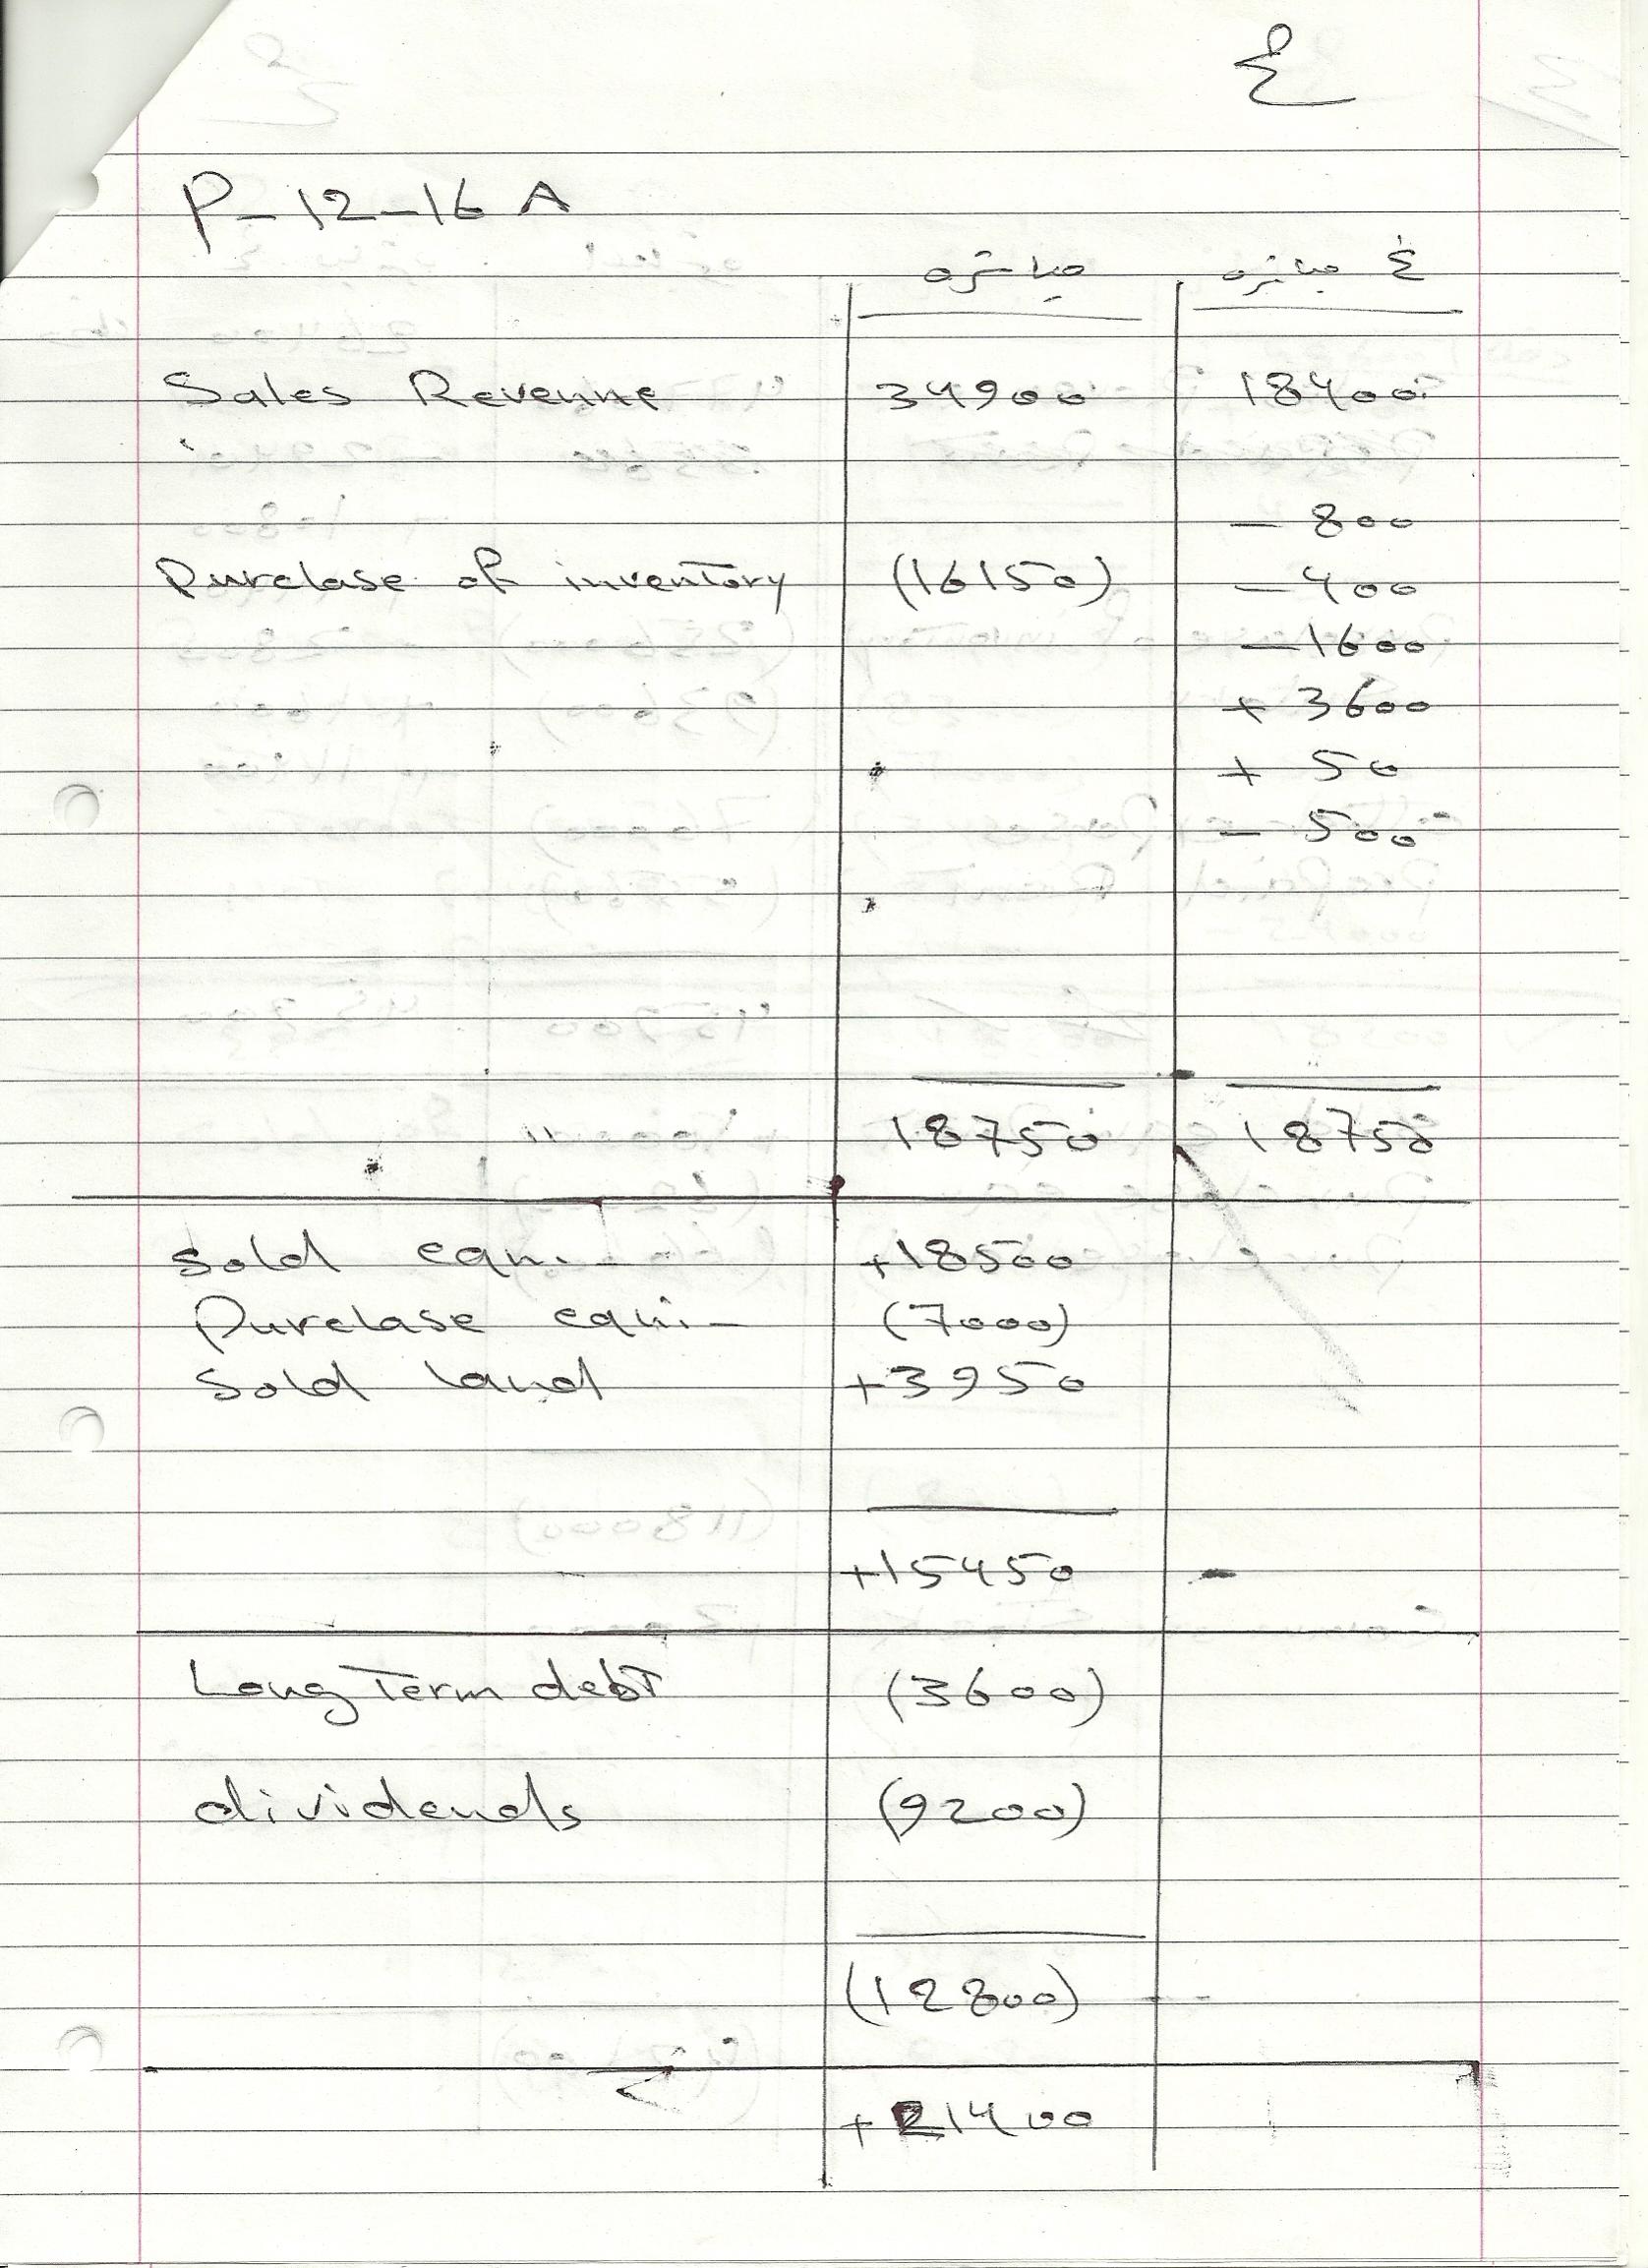 ٤
P-12-16 A
مباشره غ مباشره
Sales Revenue 34900 18400
- 800
Purclase of inventory (16150) - 400
- 1600
+ 3600
+ 50
- 500
18750 18750
Sold equi- +18500
Purclase equi- (7000)
Sold land +3950
+15450
Long Term debt (3600)
dividends (9200)
(12800)
+21400